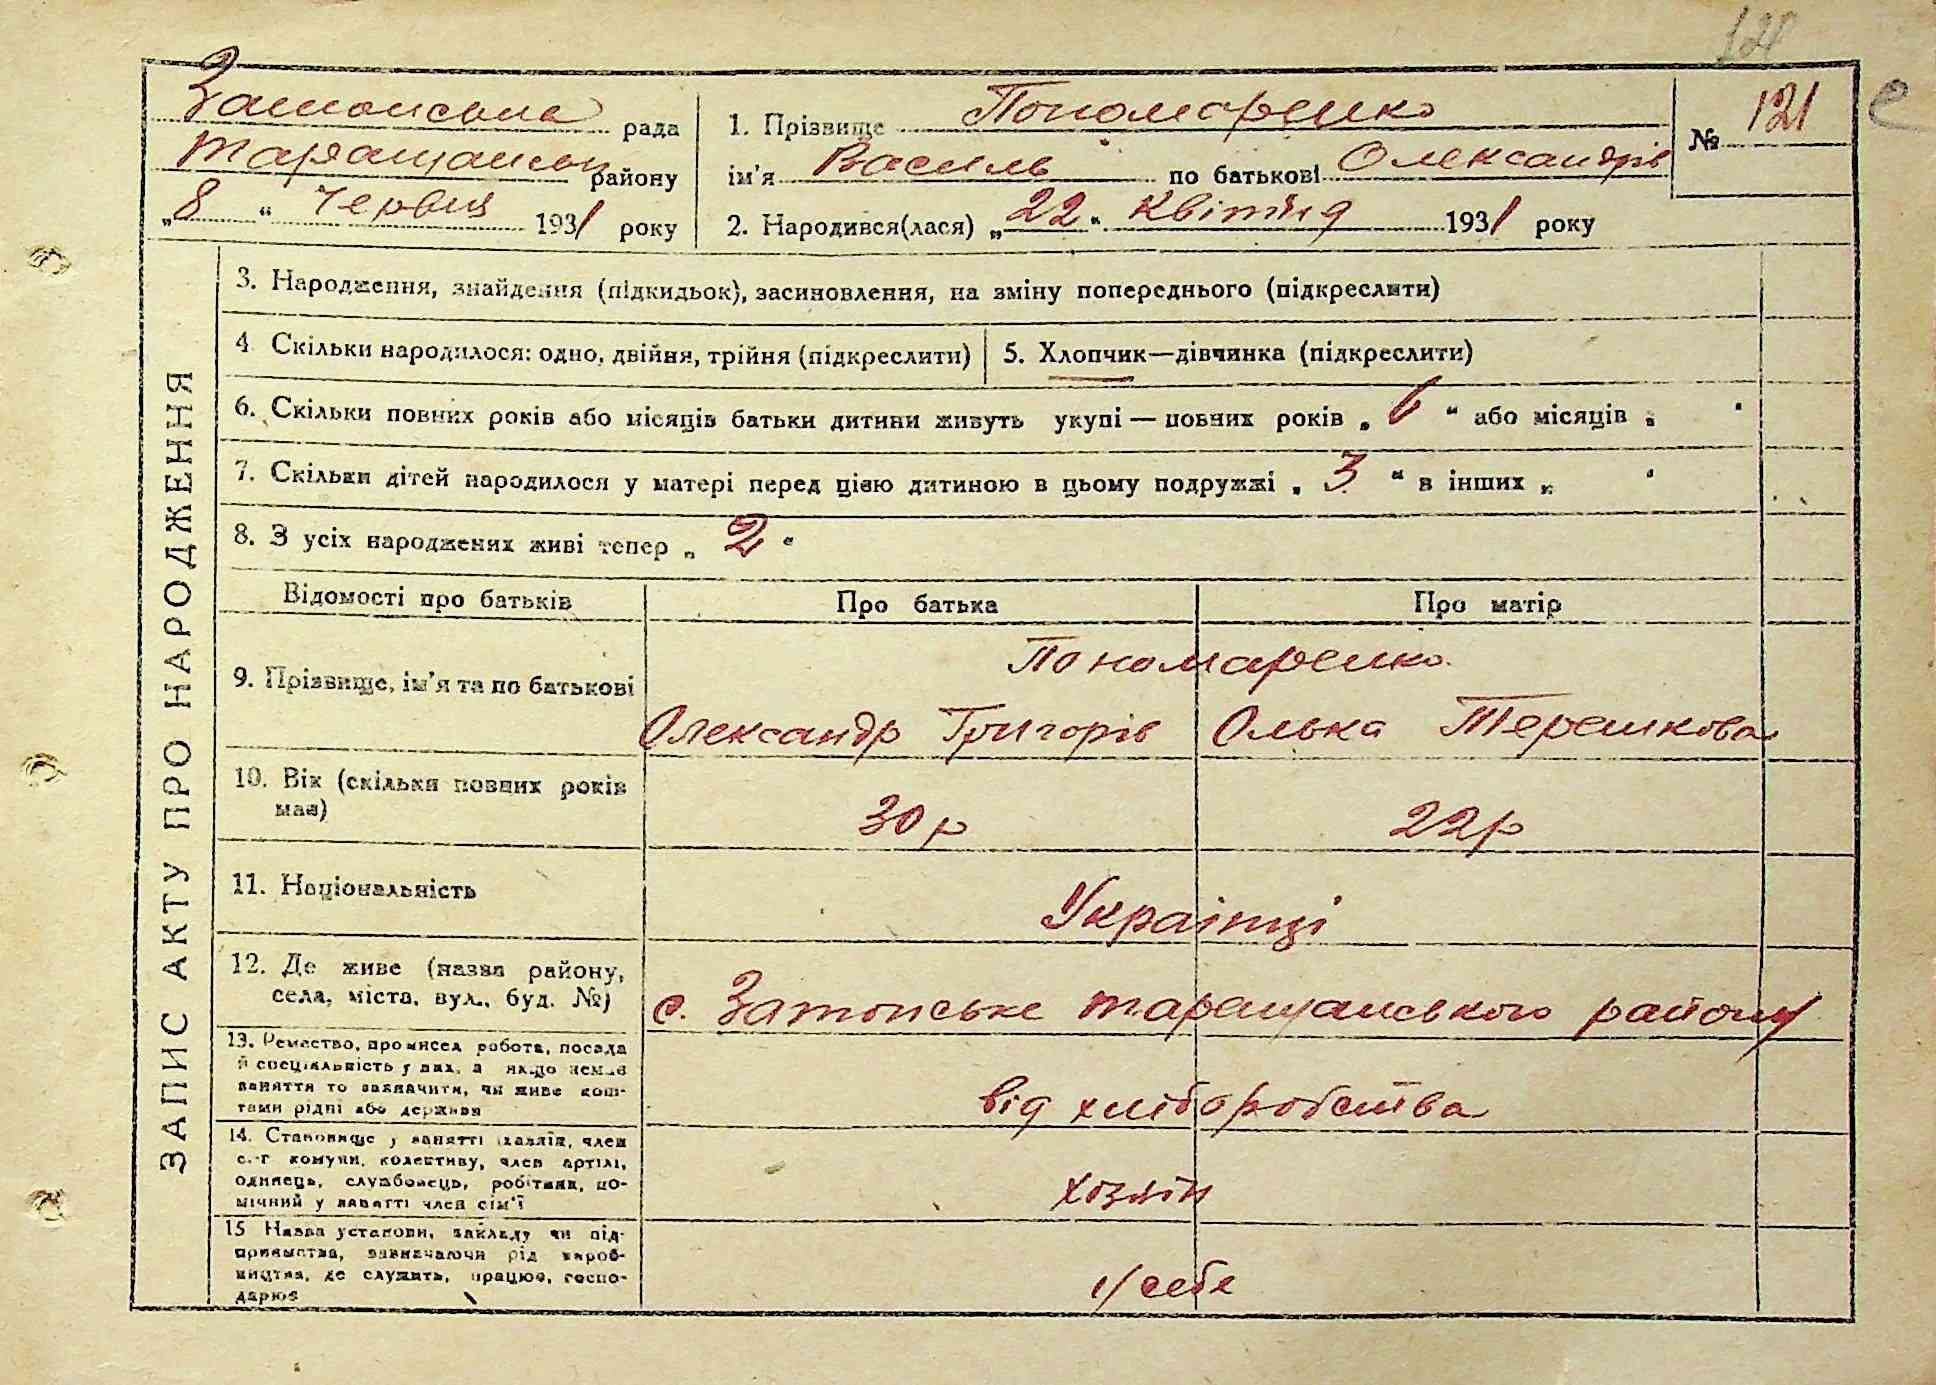 121
Затонська рада
Таращанськ району
„8“ Червця 1931 року
1. Прізвище Пономаренко
ім'я Василь по батькові Олександрів
2. Народився(лася) „22“ Квітня 1931 року
№ 121
ЗАПИС АКТУ ПРО НАРОДЖЕННЯ
3. Народження, знайдення (підкидьок), засиновлення, на зміну попереднього (підкреслити)
4. Скільки народилося: одно, двійня, трійня (підкреслити)
5. Хлопчик—дівчинка (підкреслити)
6. Скільки повних років або місяців батьки дитини живуть укупі — повних років „6“ або місяців „ “
7. Скільки дітей народилося у матері перед цією дитиною в цьому подружжі „3“ в інших „ “
8. З усіх народжених живі тепер „2“
Відомості про батьків Про батька Про матір
9. Прізвище, ім'я та по батькові
Пономаренко
Олександр Григорів Олька Терешкова
10. Вік (скільки повних років
має)
30 р 22 р
11. Національність
Українці
12. Де живе (назва району,
села, міста, вул., буд. №)
с. Затонське таращанського району
13. Ремество, промисел робота, посада
й спеціяльність у них, а якщо немає
заняття то зазначити, чи живе кош-
тами рідні або держави
від хліборобства
14. Становище у занятті (хазяїн, член
с.-г комуни, колективу, член артілі,
одинець, службовець, робітник, по-
мічний у занятті член сім'ї
хозяін
15 Назва установи, закладу чи під-
приємства, зазначаючи рід вироб-
ництва, де служить, працює, госпо-
дарює
у себе